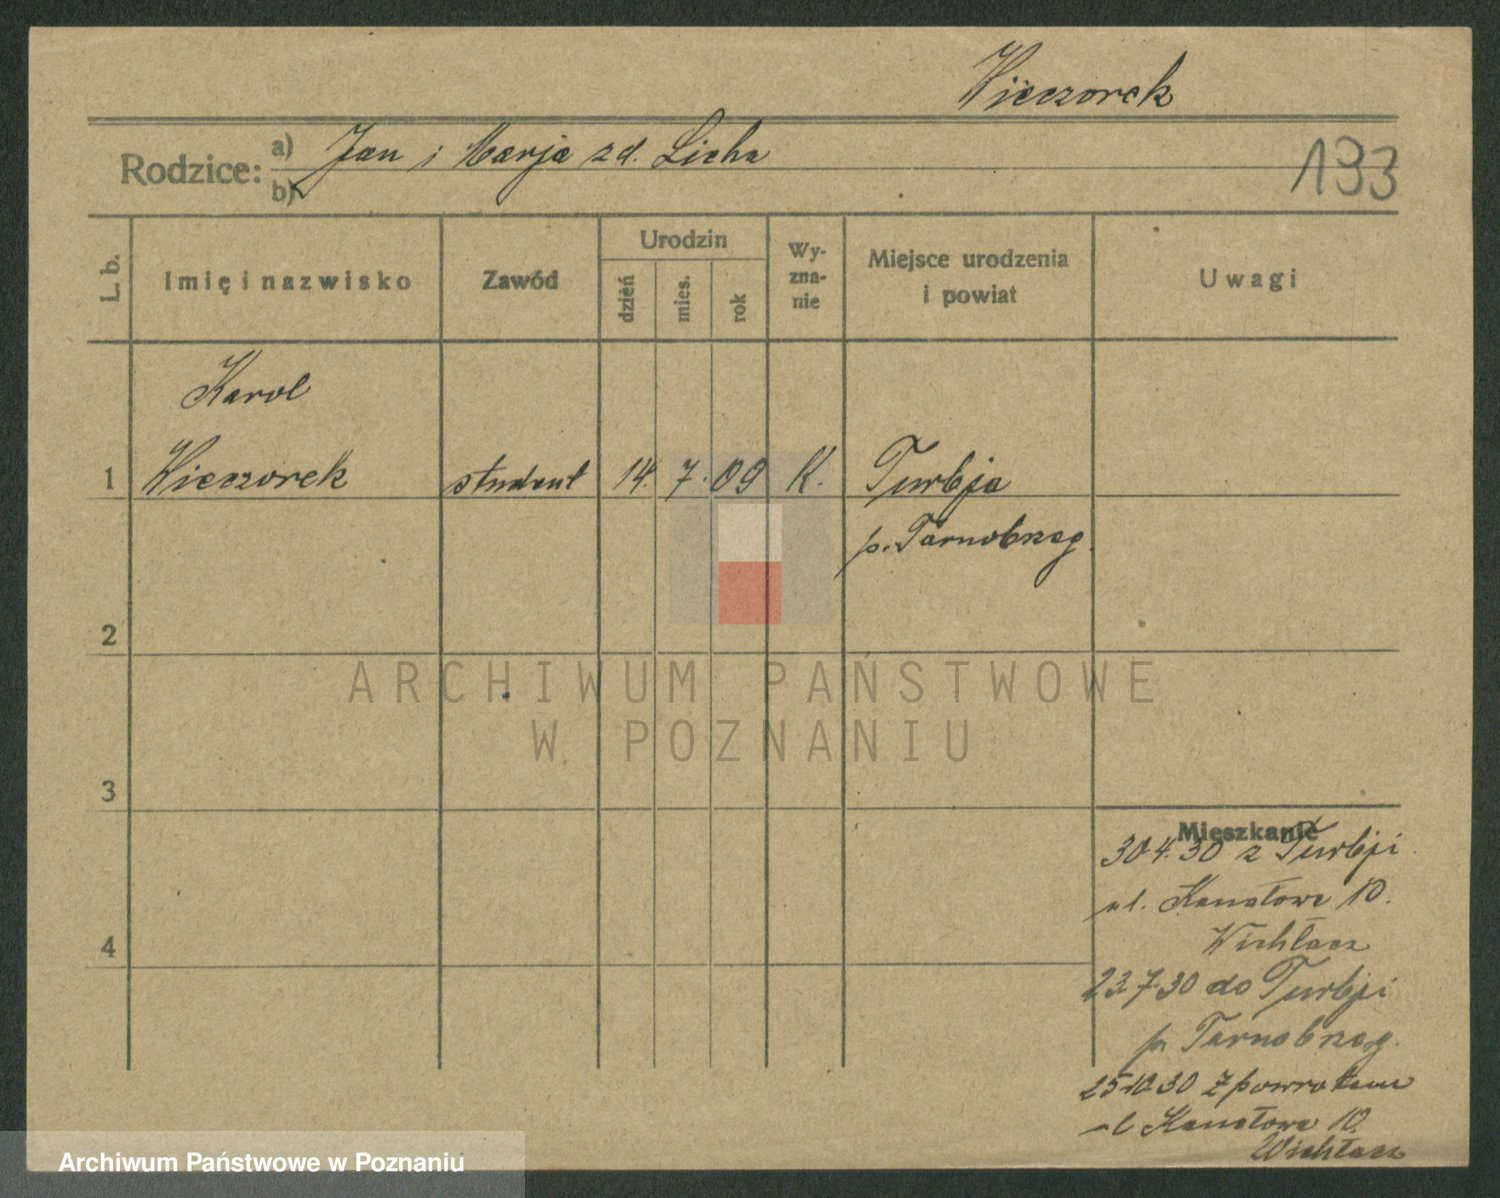 Wieczorek
Rodzice: a) Jan i Marja zd. Licha
b)
193
L. b.
Imię i nazwisko
Zawód
Urodzin
dzień
mies.
rok
Wy-
zna-
nie
Miejsce urodzenia
i powiat
Uwagi
Karol
1 Wieczorek student 14. 7. 09 K. Turbja
p. Tarnobrzeg.
2
3
4
ARCHIWUM PAŃSTWOWE
W POZNANIU
Mieszkanie
30.4.30 z Turbji
ul. Kanałowa 10.
Wichłacz
23.7.30 do Turbji
p. Tarnobrzeg.
25.10.30 z powrotem
ul Kanałowa 10.
Wichłacz
Archiwum Państwowe w Poznaniu